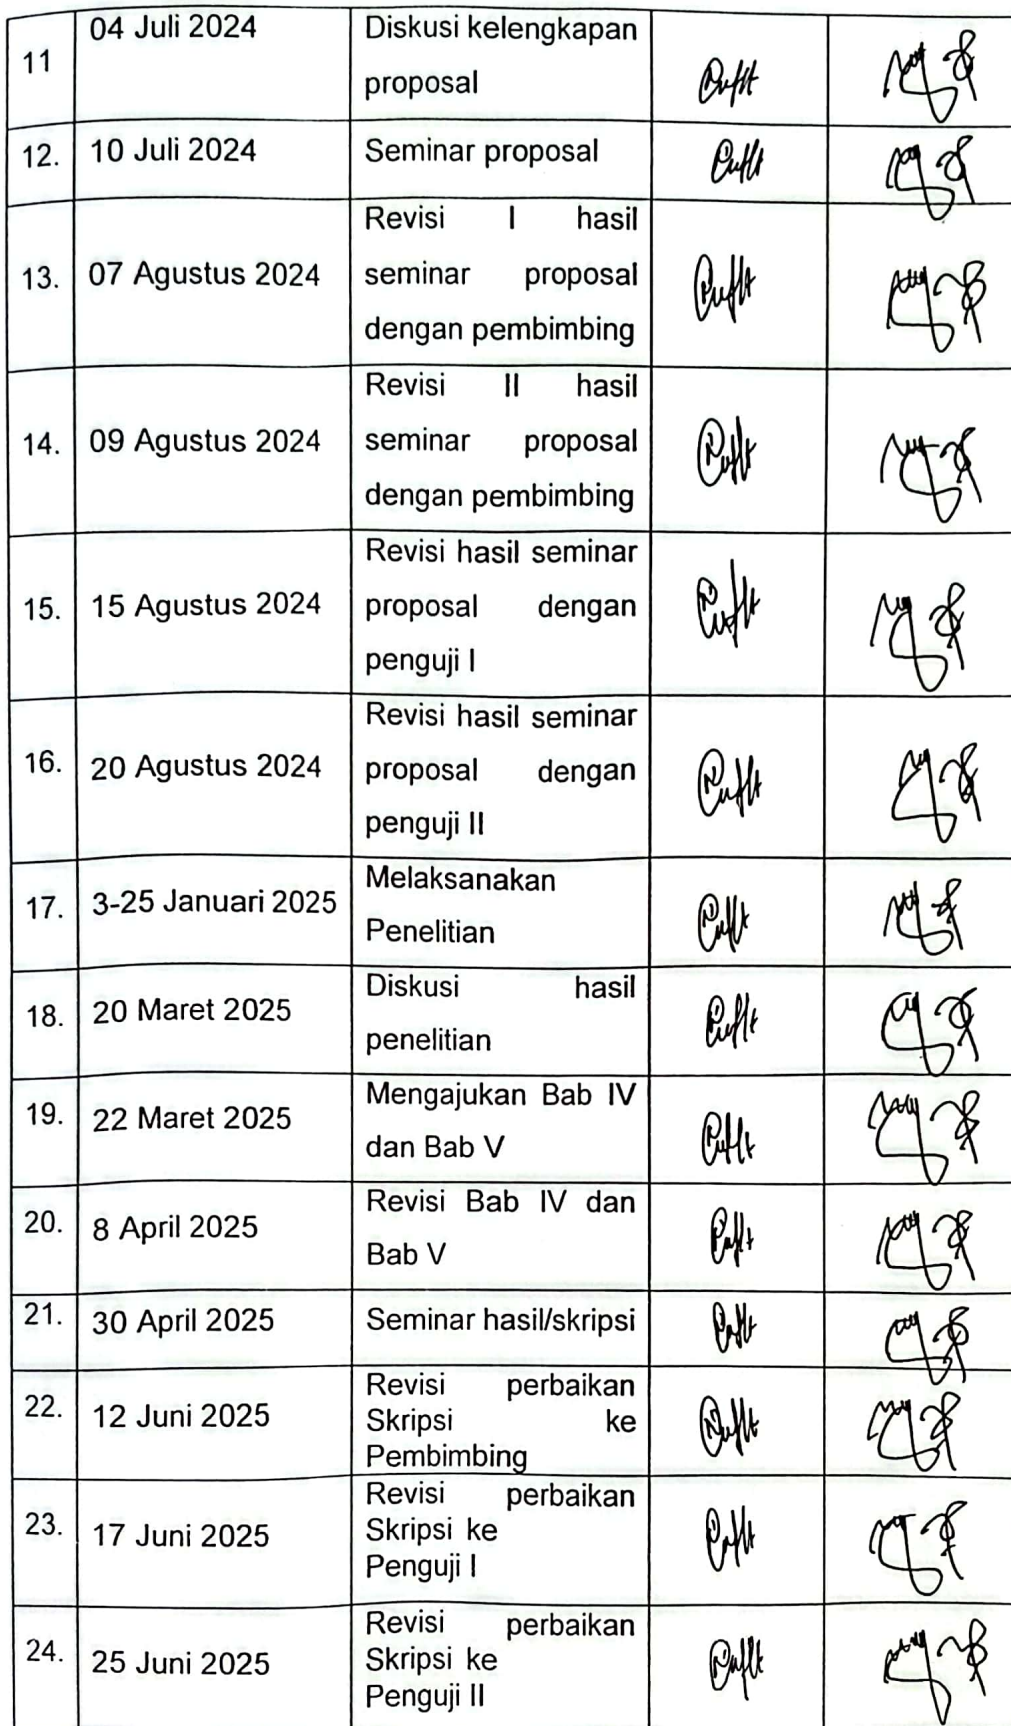 11
04 Juli 2024
Diskusi kelengkapan
proposal
12.
10 Juli 2024
Seminar proposal
13.
07 Agustus 2024
Revisi I hasil
seminar proposal
dengan pembimbing
14.
09 Agustus 2024
Revisi II hasil
seminar proposal
dengan pembimbing
15.
15 Agustus 2024
Revisi hasil seminar
proposal dengan
penguji I
16.
20 Agustus 2024
Revisi hasil seminar
proposal dengan
penguji II
17.
3-25 Januari 2025
Melaksanakan
Penelitian
18.
20 Maret 2025
Diskusi hasil
penelitian
19.
22 Maret 2025
Mengajukan Bab IV
dan Bab V
20.
8 April 2025
Revisi Bab IV dan
Bab V
21.
30 April 2025
Seminar hasil/skripsi
22.
12 Juni 2025
Revisi perbaikan
Skripsi ke
Pembimbing
23.
17 Juni 2025
Revisi perbaikan
Skripsi ke
Penguji I
24.
25 Juni 2025
Revisi perbaikan
Skripsi ke
Penguji II